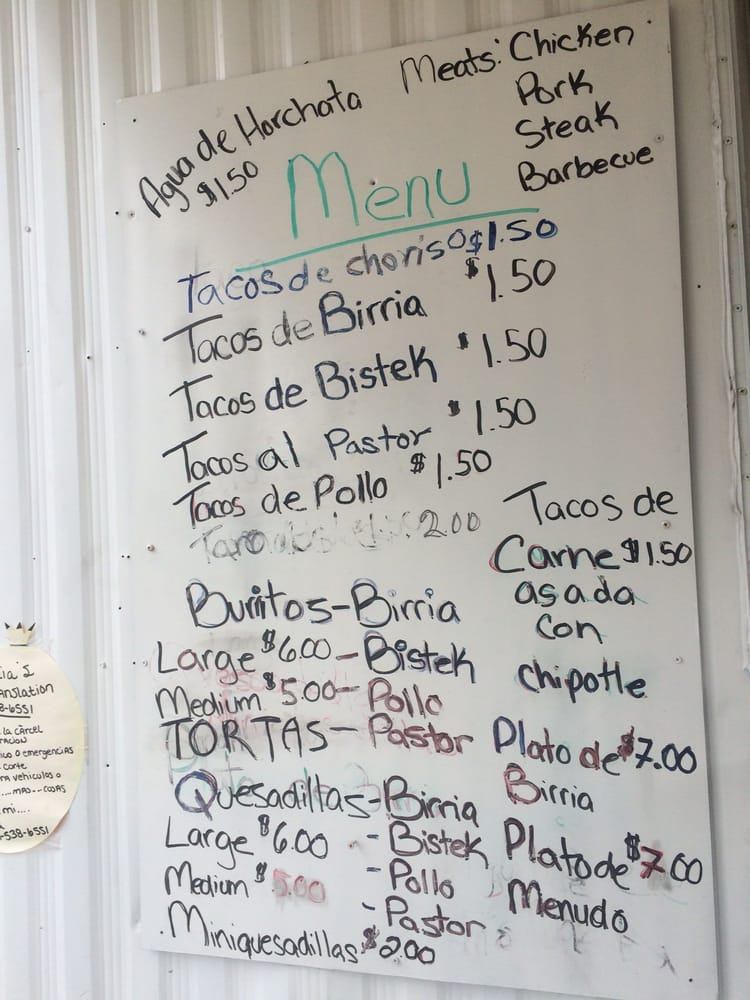 Agua de Horchata
$1.50
Meats: Chicken
Pork
Steak
Barbecue
Menu
Tacos de choriso $1.50
Tacos de Birria $1.50
Tacos de Bistek $1.50
Tacos al Pastor $1.50
Tacos de Pollo $1.50
2.00
Tacos de
Carne $1.50
asada
con
chipotle
Burritos-Birria
Large $6.00-Bistek
Medium $5.00-Pollo
TORTAS-Pastor
Plato de $7.00
Birria
Quesadillas-Birria
Large $6.00 -Bistek
Medium $5.00 -Pollo
-Pastor
Plato de $7.00
Menudo
Miniquesadillas $2.00
la cárcel
o emergencias
corte
vehiculos o
mi....
-538-6551